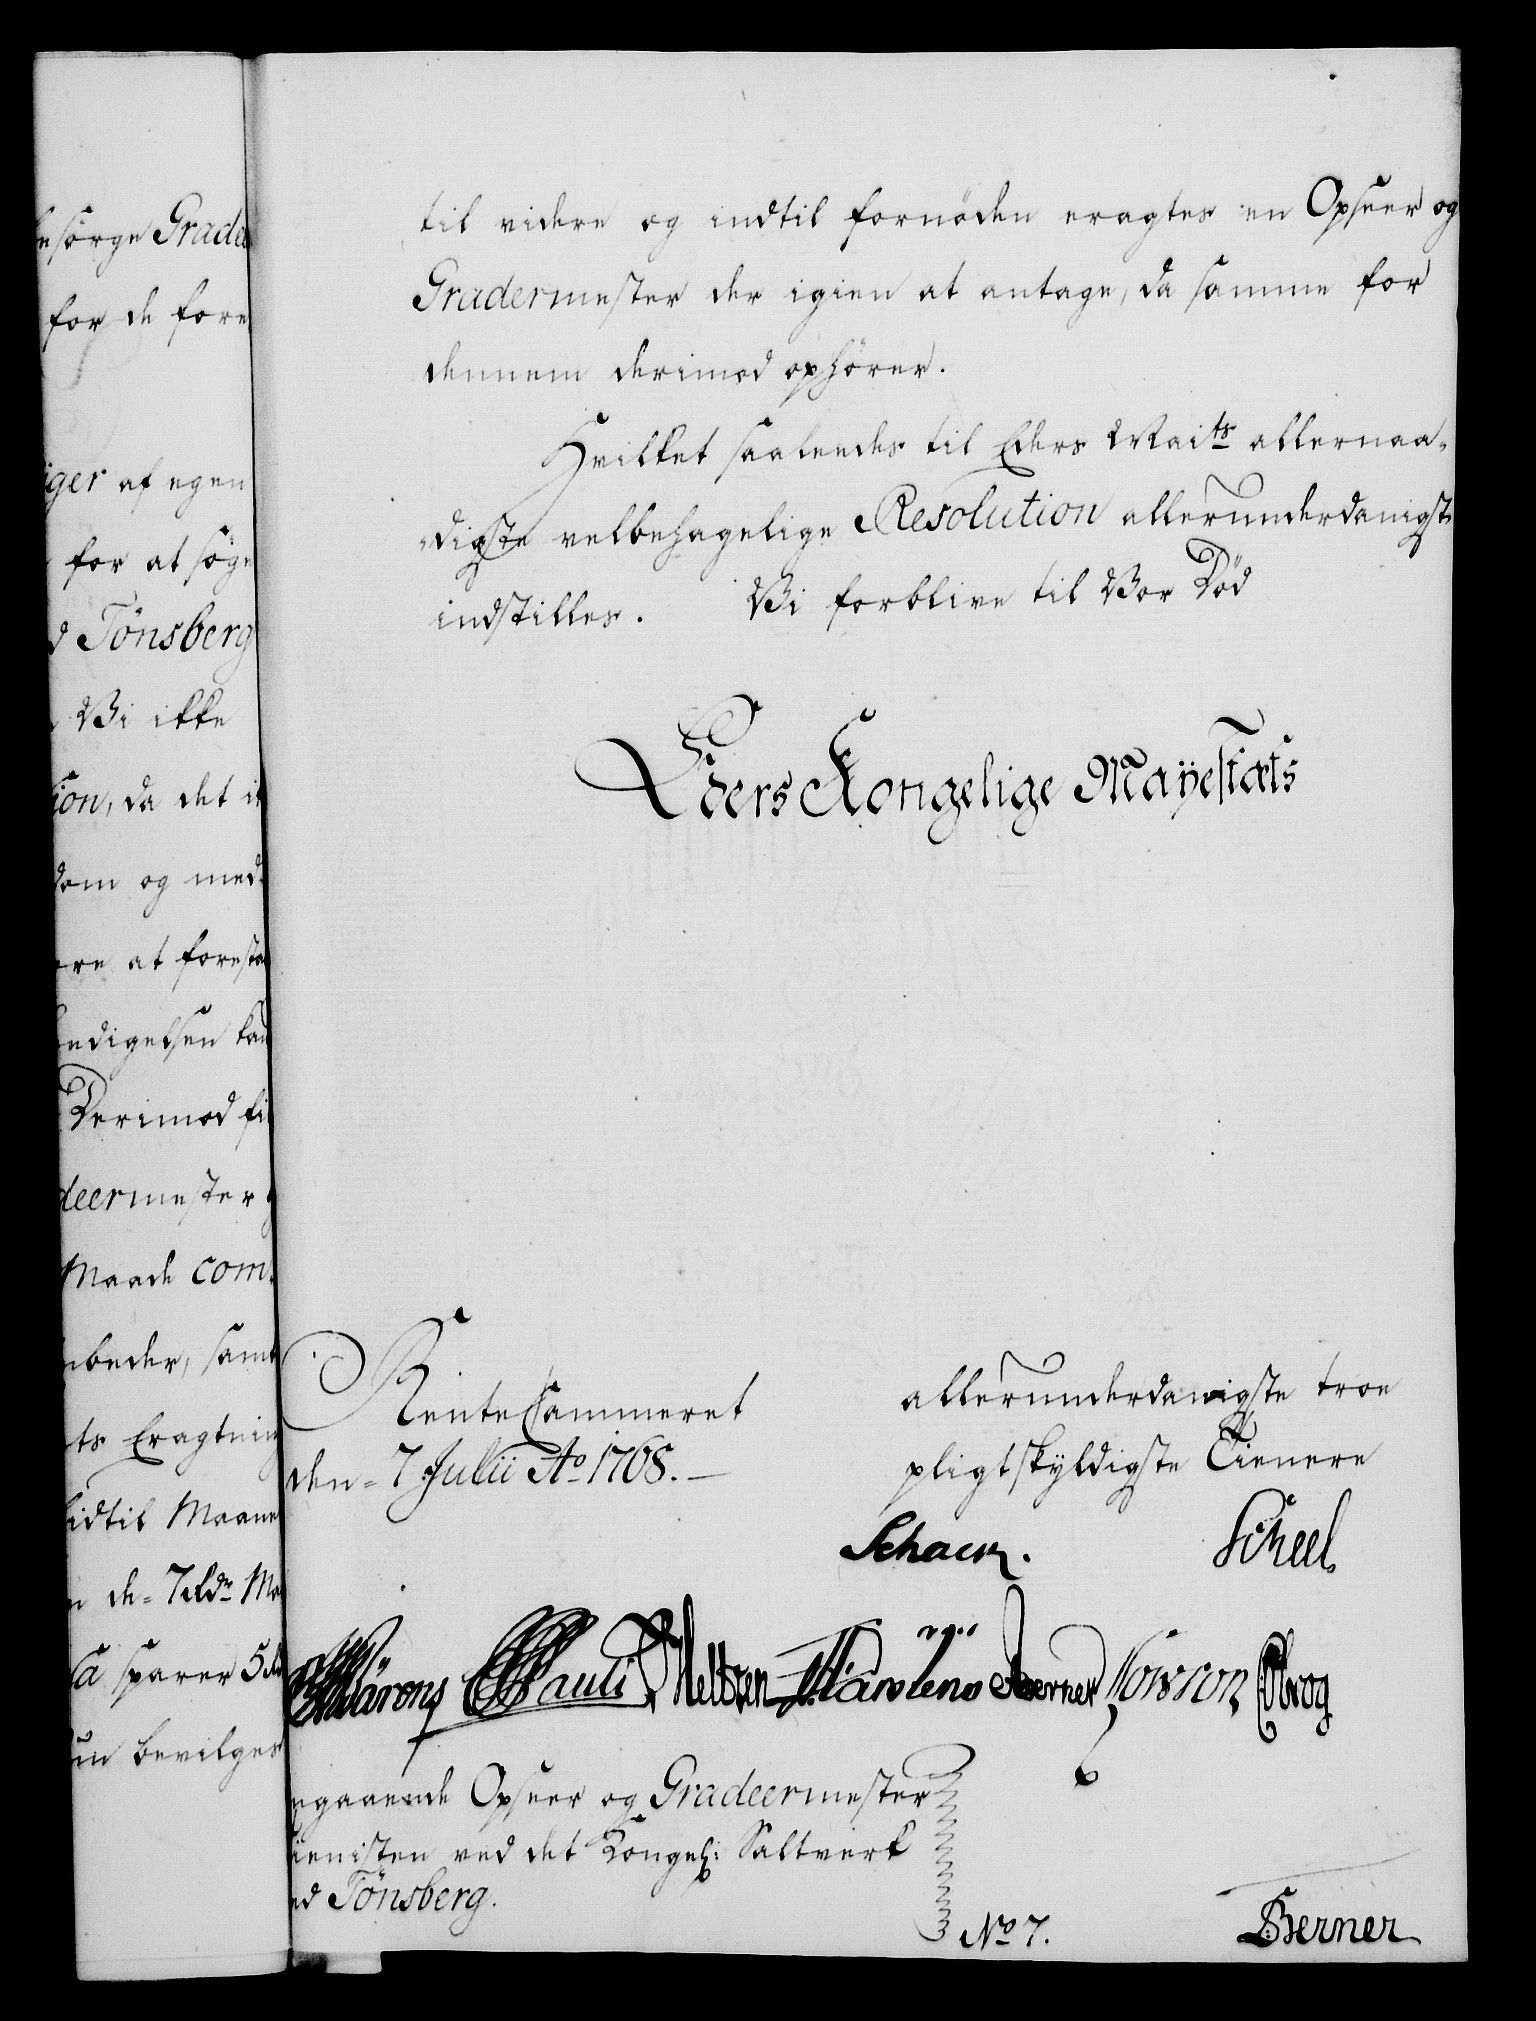 besörge Gradee
for de fore
iger af egen
for at søge
d Tönsberg
Vi ikke
ion, da det ik
dom og med
ere at foresta
endigelsen kan
Derimod fi
deermester
Maade com-
nbeder, samt
ts Eragtnin
lidtil Maane
n de= 7 Rdr Ma
sa sparer 5
un bevilges
til videre og indtil fornöden eragtes en Opseer og
Gradermester der igien at antage, da samme for
dennem derimod ophörer.
Hvilket saaledes til Eders Maits allernaa-
digste velbehagelige Resolution allerunderdanigst
indstilles. Vi forblive til Vor Död
Eders Kongelige Mayestæts
RenteCammeret
den= 7 Julii Ao 1768.
allerunderdanigste troe
pligtskyldigste Tienere
Schack. Scheel
Pauli Meltzen Karstens Berner Kowson Obrog
ngaaende Opseer og Gradeermester
ienisten ved det Kongel: Saltverk
ed Tönsberg.
No 7.
Berner